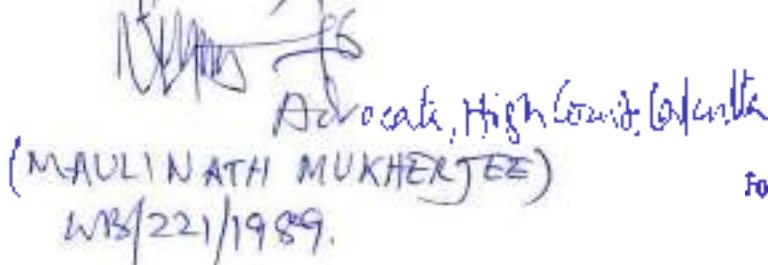 Advocate, High Court, Calcutta
(MAULINATH MUKHERJEE)
Fo
WB/221/1989.